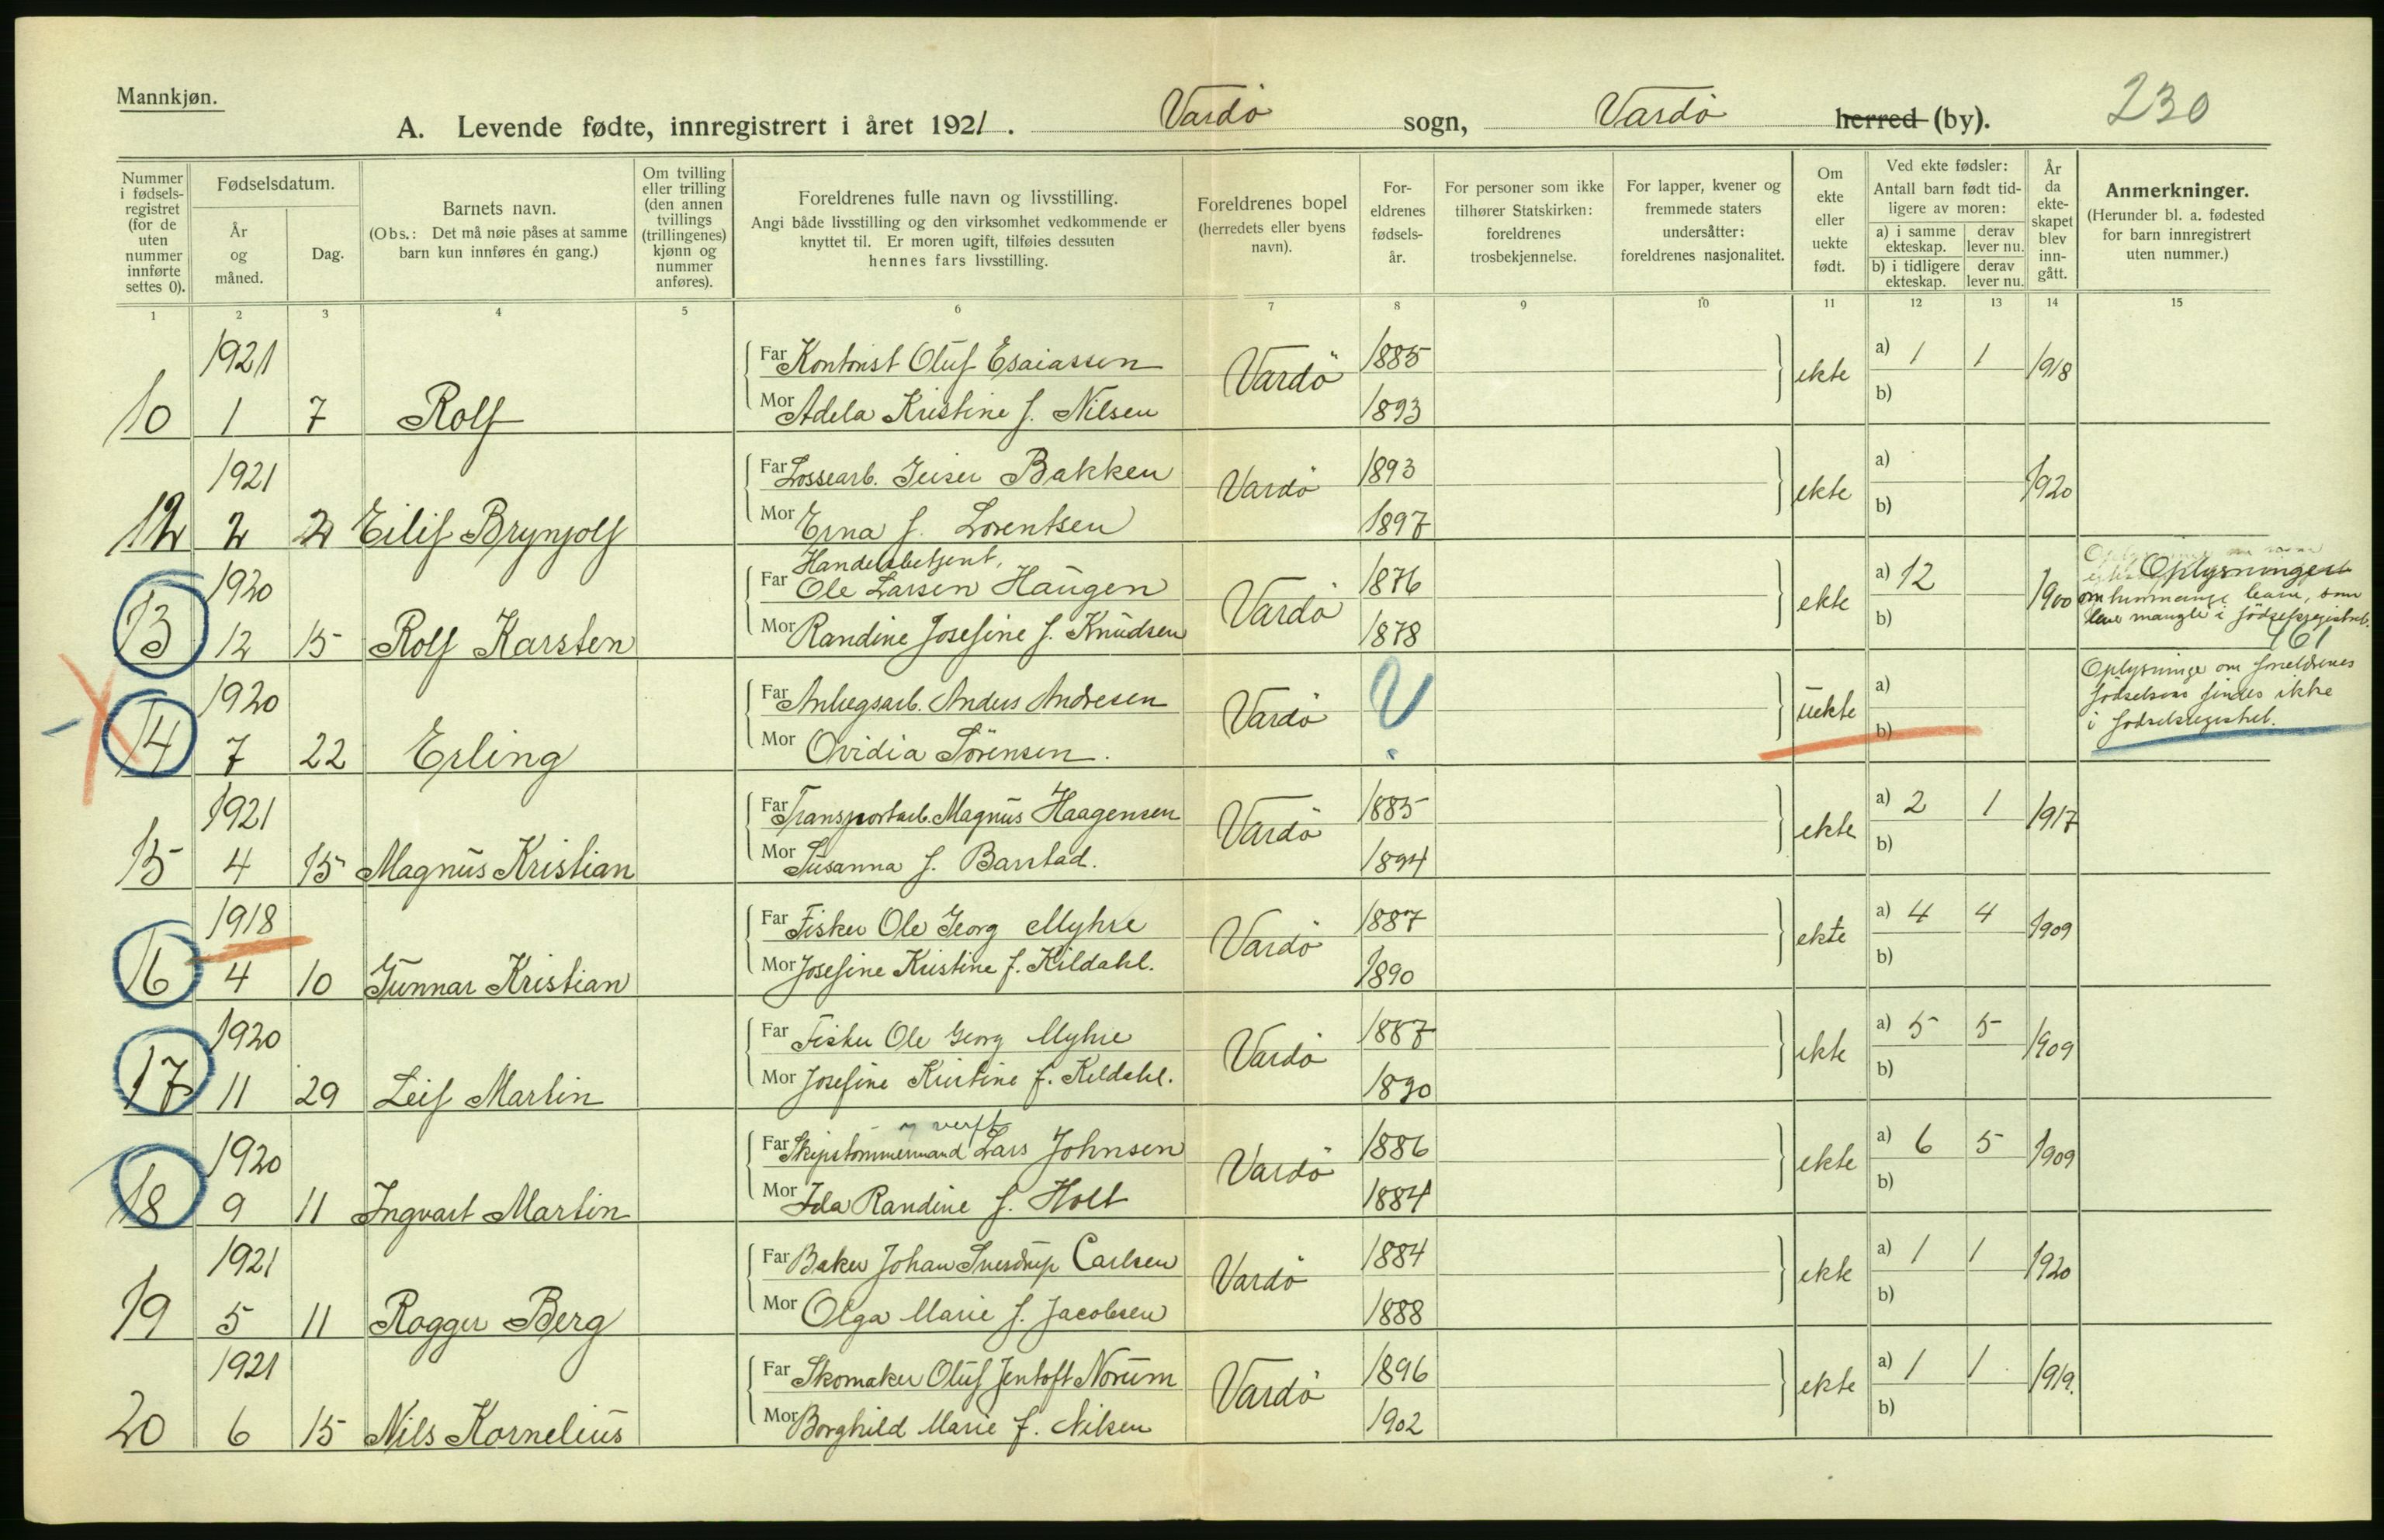 Mannkjøn.
A. Levende fødte, innregistrert i året 1921. Vardö sogn, Vardö herred (by). 230
Nummer i fødselsregistret (for de uten nummer innførte settes 0).
Fødselsdatum.
År og måned.
Dag.
Barnets navn.
(Obs.: Det må nøie påses at samme barn kun innføres én gang.)
Om tvilling eller trilling (den annen tvillings (trillingenes) kjønn og nummer anføres).
Foreldrenes fulle navn og livsstilling.
Angi både livsstilling og den virksomhet vedkommende er knyttet til. Er moren ugift, tilføies dessuten hennes fars livsstilling.
Foreldrenes bopel (herredets eller byens navn).
Foreldrenes fødselsår.
For personer som ikke tilhører Statskirken: foreldrenes trosbekjennelse.
For lapper, kvener og fremmede staters undersåtter: foreldrenes nasjonalitet.
Om ekte eller uekte født.
Ved ekte fødsler:
Antall barn født tidligere av moren:
a) i samme ekteskap. derav lever nu.
b) i tidligere ekteskap. derav lever nu.
År da ekteskapet blev inngått.
Anmerkninger.
(Herunder bl. a. fødested for barn innregistrert uten nummer.)
1 2 3 4 5 6 7 8 9 10 11 12 13 14 15
1921 Far Kontorist Oluf Esaiassen Vardö 1885 ekte a) 1 1 1918
10 1 7 Rolf Mor Adela Kristine f. Nilsen 1893 b)
1921 Far Lossearb. Geiser Bakken Vardö 1893 ekte a) 1920
12 2 2 Eilif Brynjolf Mor Erna f. Lorentsen 1897 b)
Handelsbetjent,
1920 Far Ole Larsen Haugen Vardö 1876 ekte a) 12 1900 Oplysninger
13 12 15 Rolf Karsten Mor Randine Josefine f. Knudsen 1878 b) om hvormange som
lever mangler i födselsregistret.
161
1920 Far Anlegsarb. Anders Andresen Vardö ? uekte a) Oplysninge om foreldrenes
14 7 22 Erling Mor Ovidia Sörensen. b) födselsaar findes ikke
i fodselsregistret.
1921 Far Transportarb. Magnus Haagensen Vardö 1885 ekte a) 2 1 1917
15 4 15 Magnus Kristian Mor Susanna f. Barstad. 1894 b)
1918 Far Fisker Ole Georg Myhre Vardö 1887 ekte a) 4 4 1909
16 4 10 Gunnar Kristian Mor Josefine Kristine f. Kildahl. 1890 b)
1920 Far Fisker Ole Georg Myhre Vardö 1887 ekte a) 5 5 1909
17 11 29 Leif Martin Mor Josefine Kristine f. Kildahl. 1890 b)
verft
1920 Far Skipstømmermand Lars Johnsen Vardö 1886 ekte a) 6 5 1909
18 9 11 Ingvart Martin Mor Ida Randine f. Holt 1884 b)
1921 Far Baker Johan Sverdrup Carlsen Vardö 1884 ekte a) 1 1 1920
19 5 11 Rogger Berg Mor Olga Marie f. Jacobsen 1888 b)
1921 Far Skomaker Oluf Jentoft Norum Vardö 1896 ekte a) 1 1 1919.
20 6 15 Nils Kornelius Mor Borghild Marie f. Nilsen 1902 b)